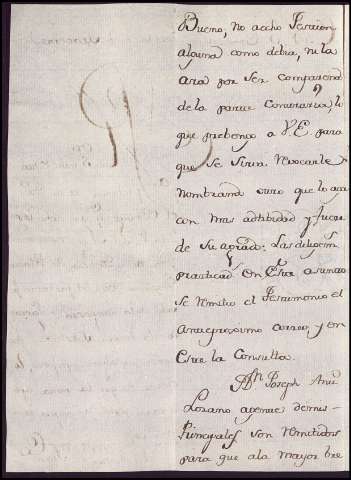 Bueno, no accho Jestion
alguna como debia, ni la
ara por ser comparona
de la parte Contraria, lo
que prebengo a VE para
que se sirva revocarle
nombrando otro que lo aga
con mas actibidad y fuere
de su agrado; Las diligens
practicad en este asumto
se remitio el Testimonio el
anteproximo correo, y en
este la Consulta.
Dn Joseph Antt
Lozano agente de mis
Principales son remitidos
para que a la mayor bre